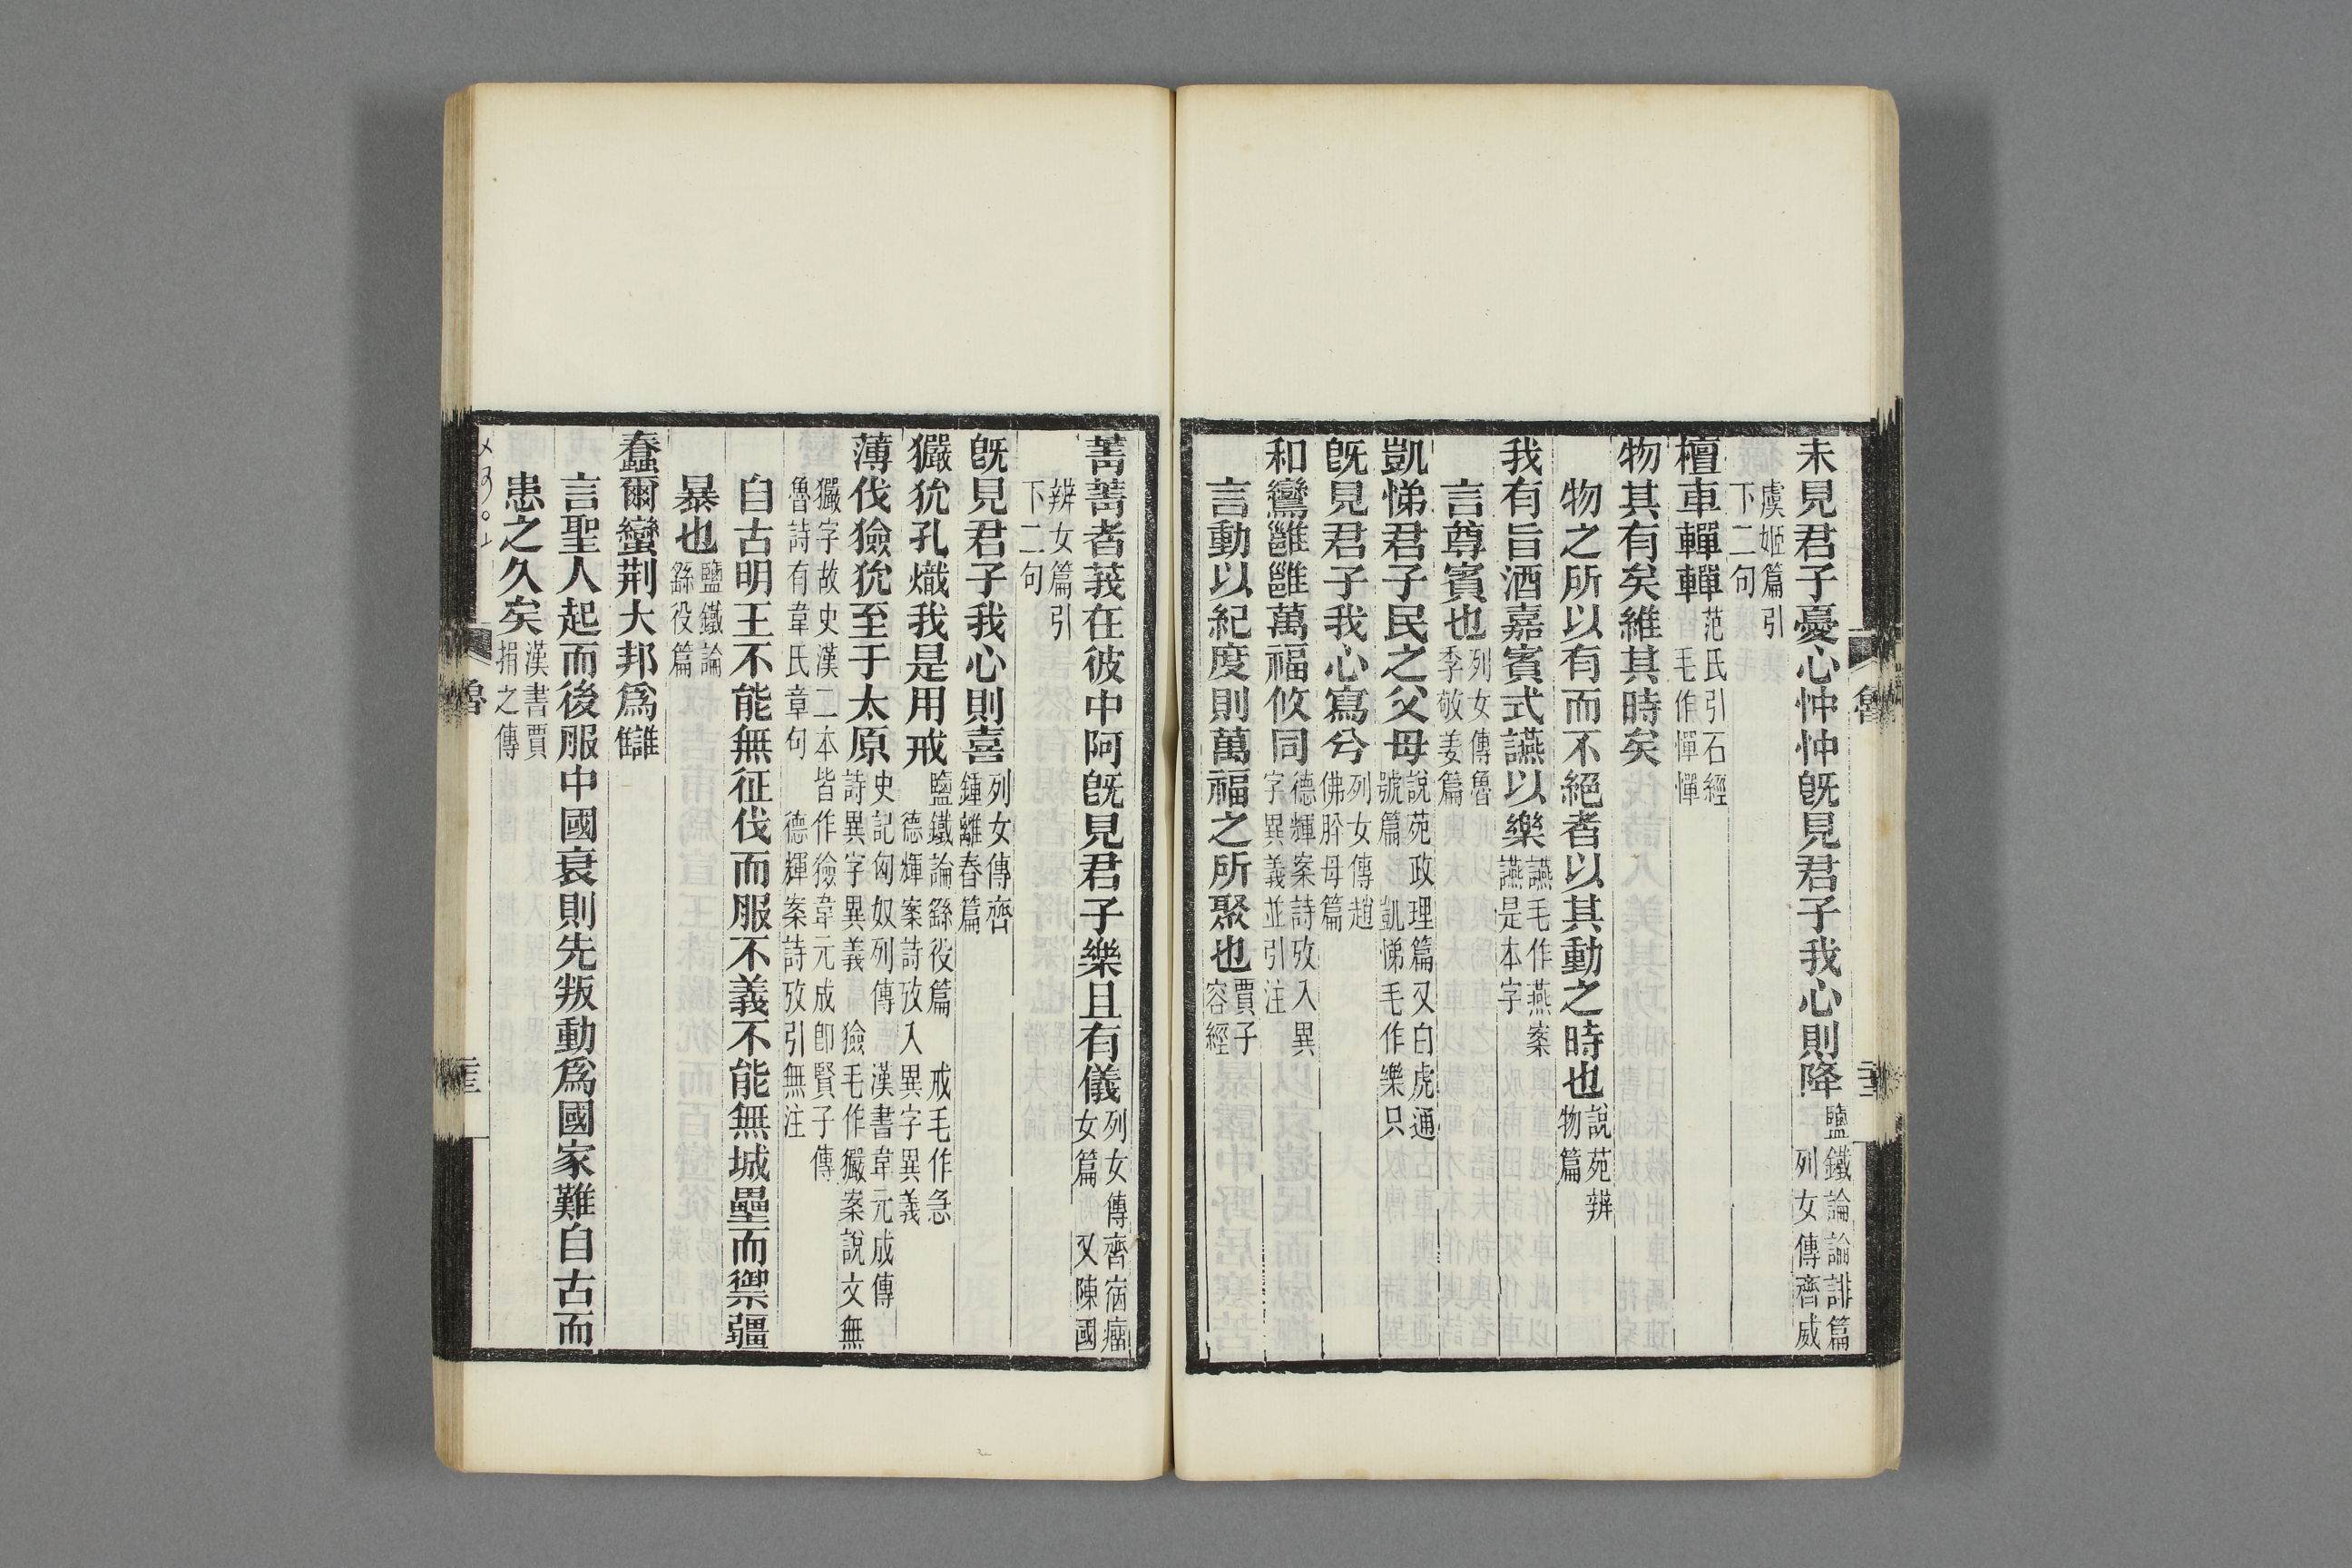 未見君子憂心忡忡旣見君子我心則降鹽鐵論論誹篇列女傳齊威
虞姬篇引下二句
檀車轓轓范氏引石經毛作幝幝
物其有矣維其時矣
物之所以有而不絕者以其動之時也說苑辨物篇
我有旨酒嘉賓式讌以樂讌毛作燕案讌是本字
言尊賓也列女傳魯季敬姜篇
凱悌君子民之父母說苑政理篇又白虎通號篇凱悌毛作樂只
旣見君子我心寫兮列女傳趙佛肸母篇
和鸞雝雝萬福攸同德輝案詩攷入異字異義並引注
言動以紀度則萬福之所聚也賈子容經
菁菁者莪在彼中阿旣見君子樂且有儀列女傳齊宿瘤女篇又陳國
辨女篇引下二句
旣見君子我心則喜列女傳齊鍾離春篇
玁狁孔熾我是用戒鹽鐵論繇役篇戒毛作急德輝案詩攷入異字異義
薄伐獫狁至于太原史記匈奴列傳漢書韋元成傳詩異字異義獫毛作玁案說文無
玁字故史漢二本皆作獫韋元成卽賢子傳魯詩有韋氏章句德輝案詩攷引無注
自古明王不能無征伐而服不義不能無城壘而禦疆
暴也鹽鐵論繇役篇
蠢爾蠻荆大邦爲讎
言聖人起而後服中國衰則先叛動爲國家難自古而
患之久矣漢書賈捐之傳
魯